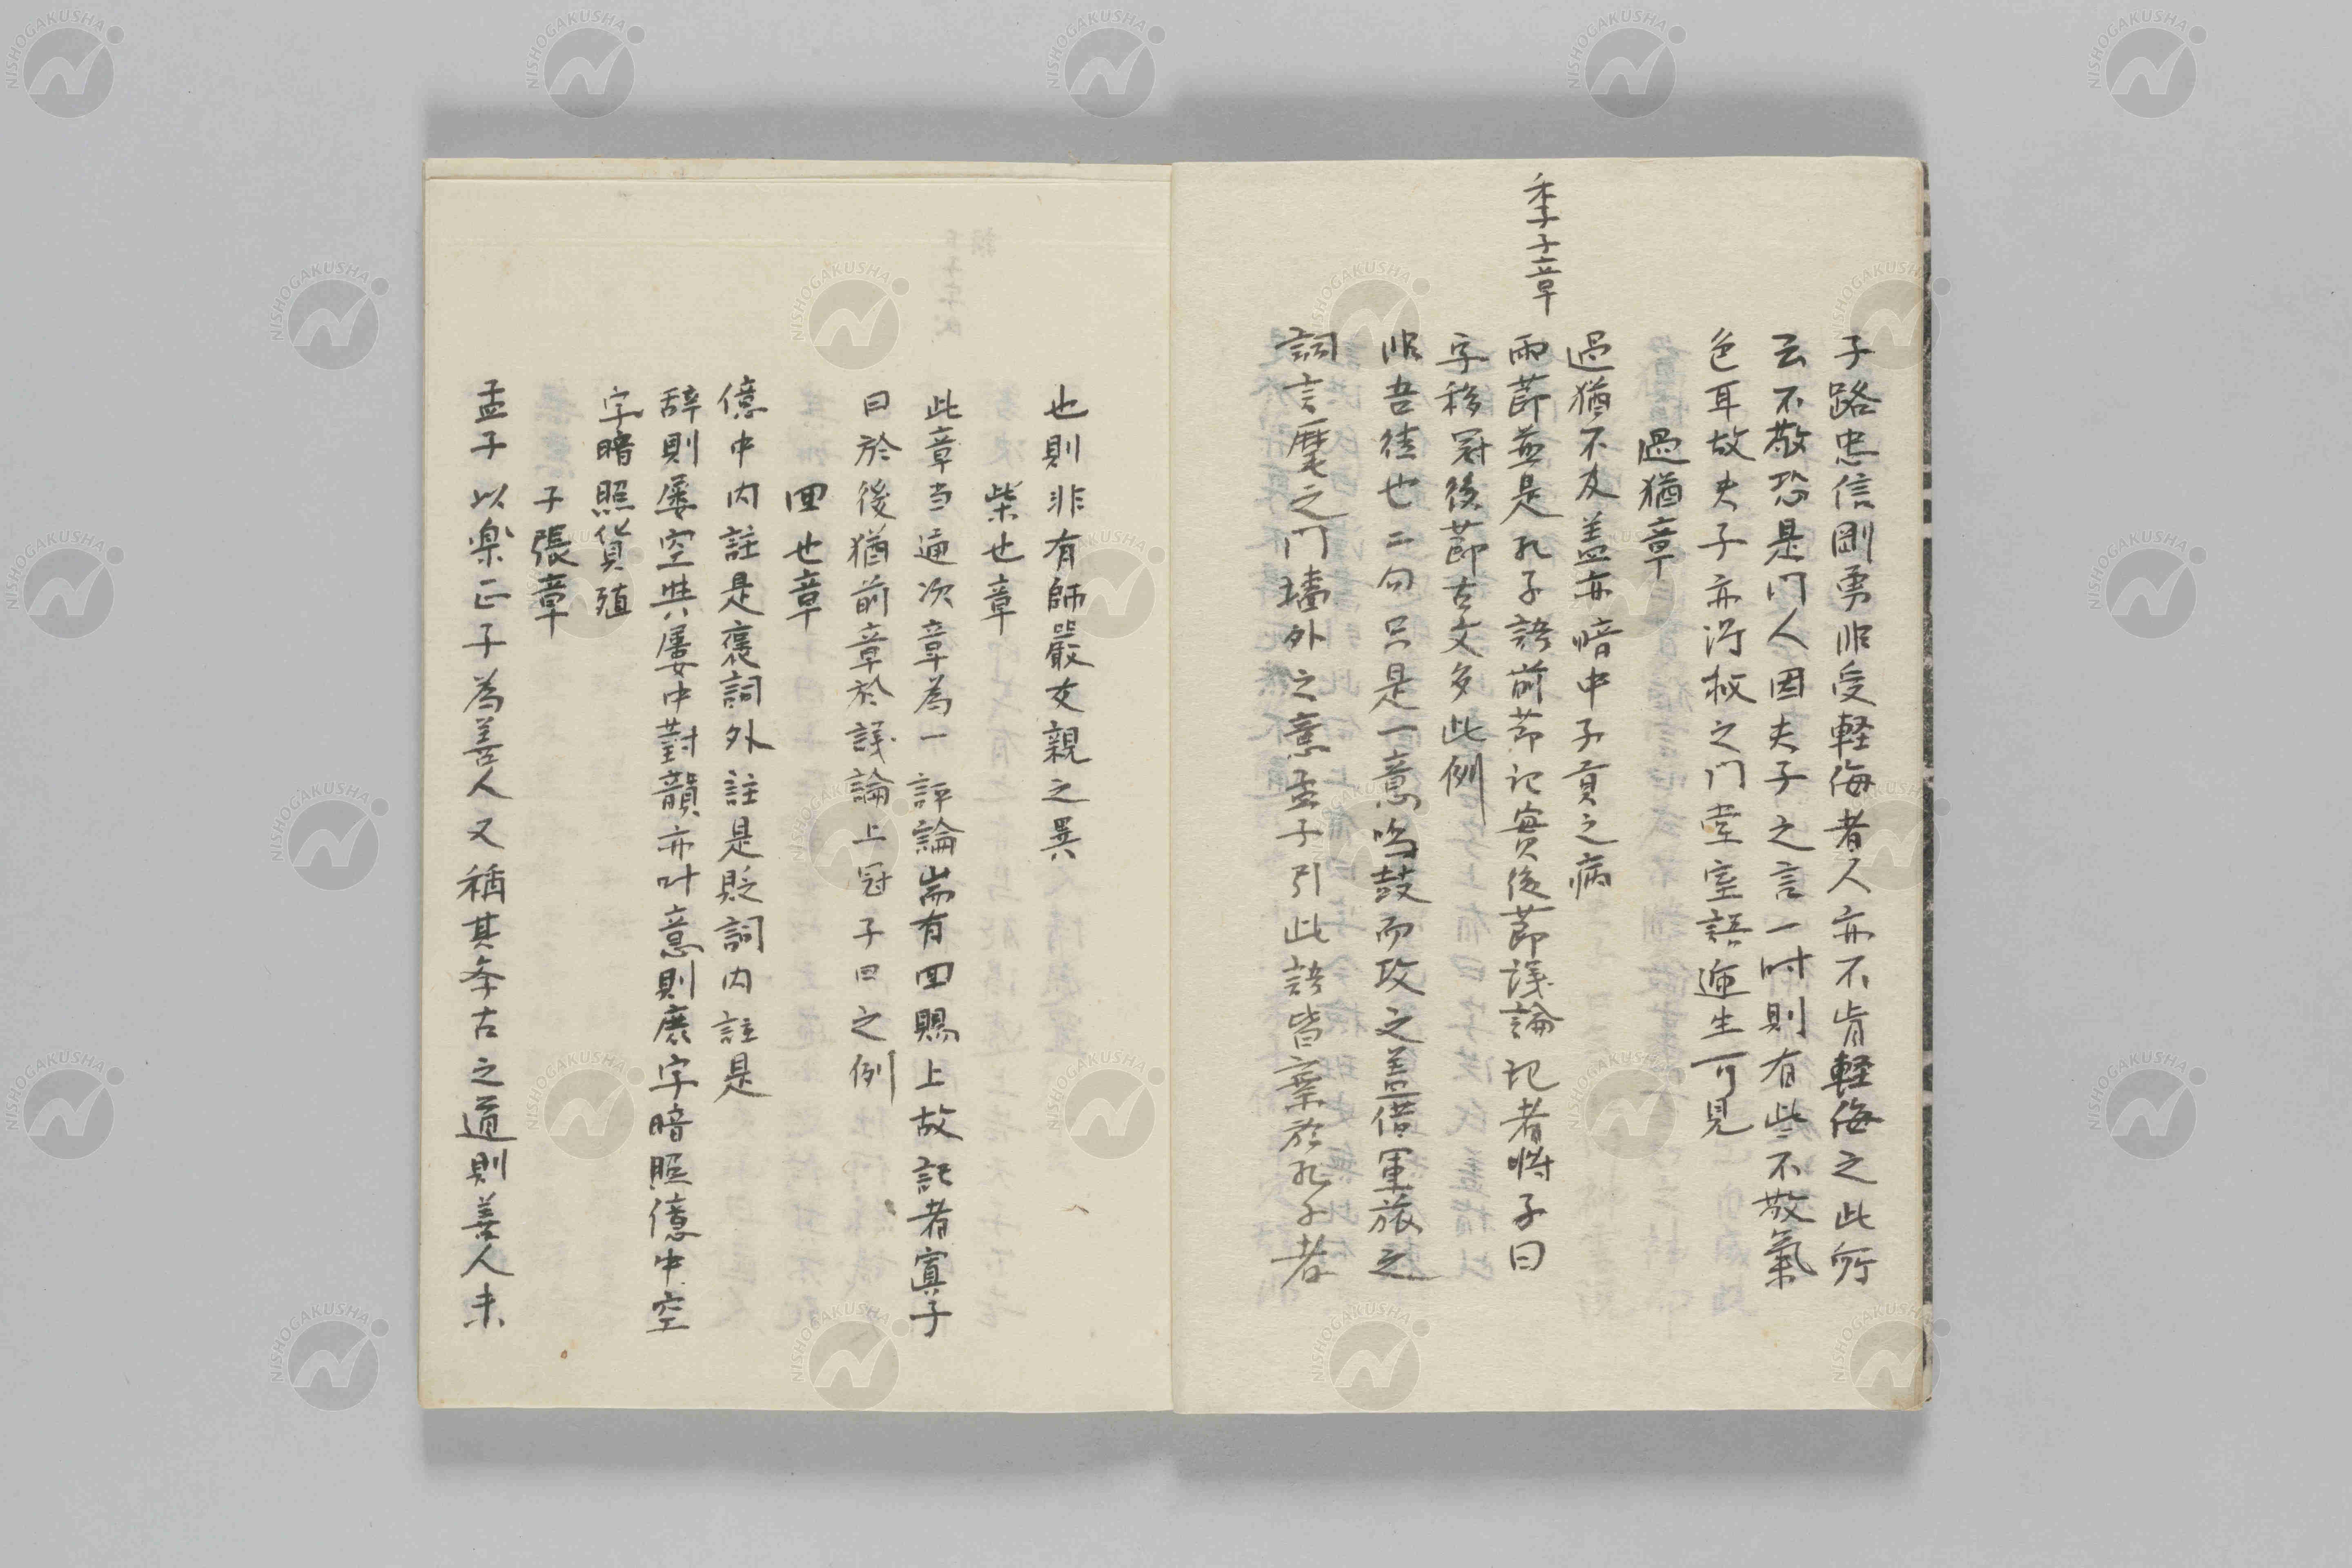 子路忠信剛勇非受軽侮者人亦不肯軽侮之此所
云不敬恐是門人因夫子之言一時則有些不敬氣
色耳故夫子亦得救之門堂室語逓生可見
過猶章
過猶不及盖亦暗中子貢之病
季子章
両莭並是孔子語前莭記實後莭議論記者將子曰
字移冠後莭古文多此例
非吾徒也二句只是一意鳴鼓而攻之盖借軍旅之
詞言麾之门墻外之意孟子引此語皆棄於孔子者
也則非有師嚴友親之異
柴也章
此章当通次章為一評論耑有回賜上故記者寘子
曰於後猶前章於議論上冠子曰之例
回也章
億中内註是褒詞外註是貶詞内註是
辞則屡空與屡中對韻亦叶意則庶字暗照億中空
字暗照貨殖
子張章
孟子以楽正子為善人又稱其斈古之道則善人未
NISHOGAKUSHA